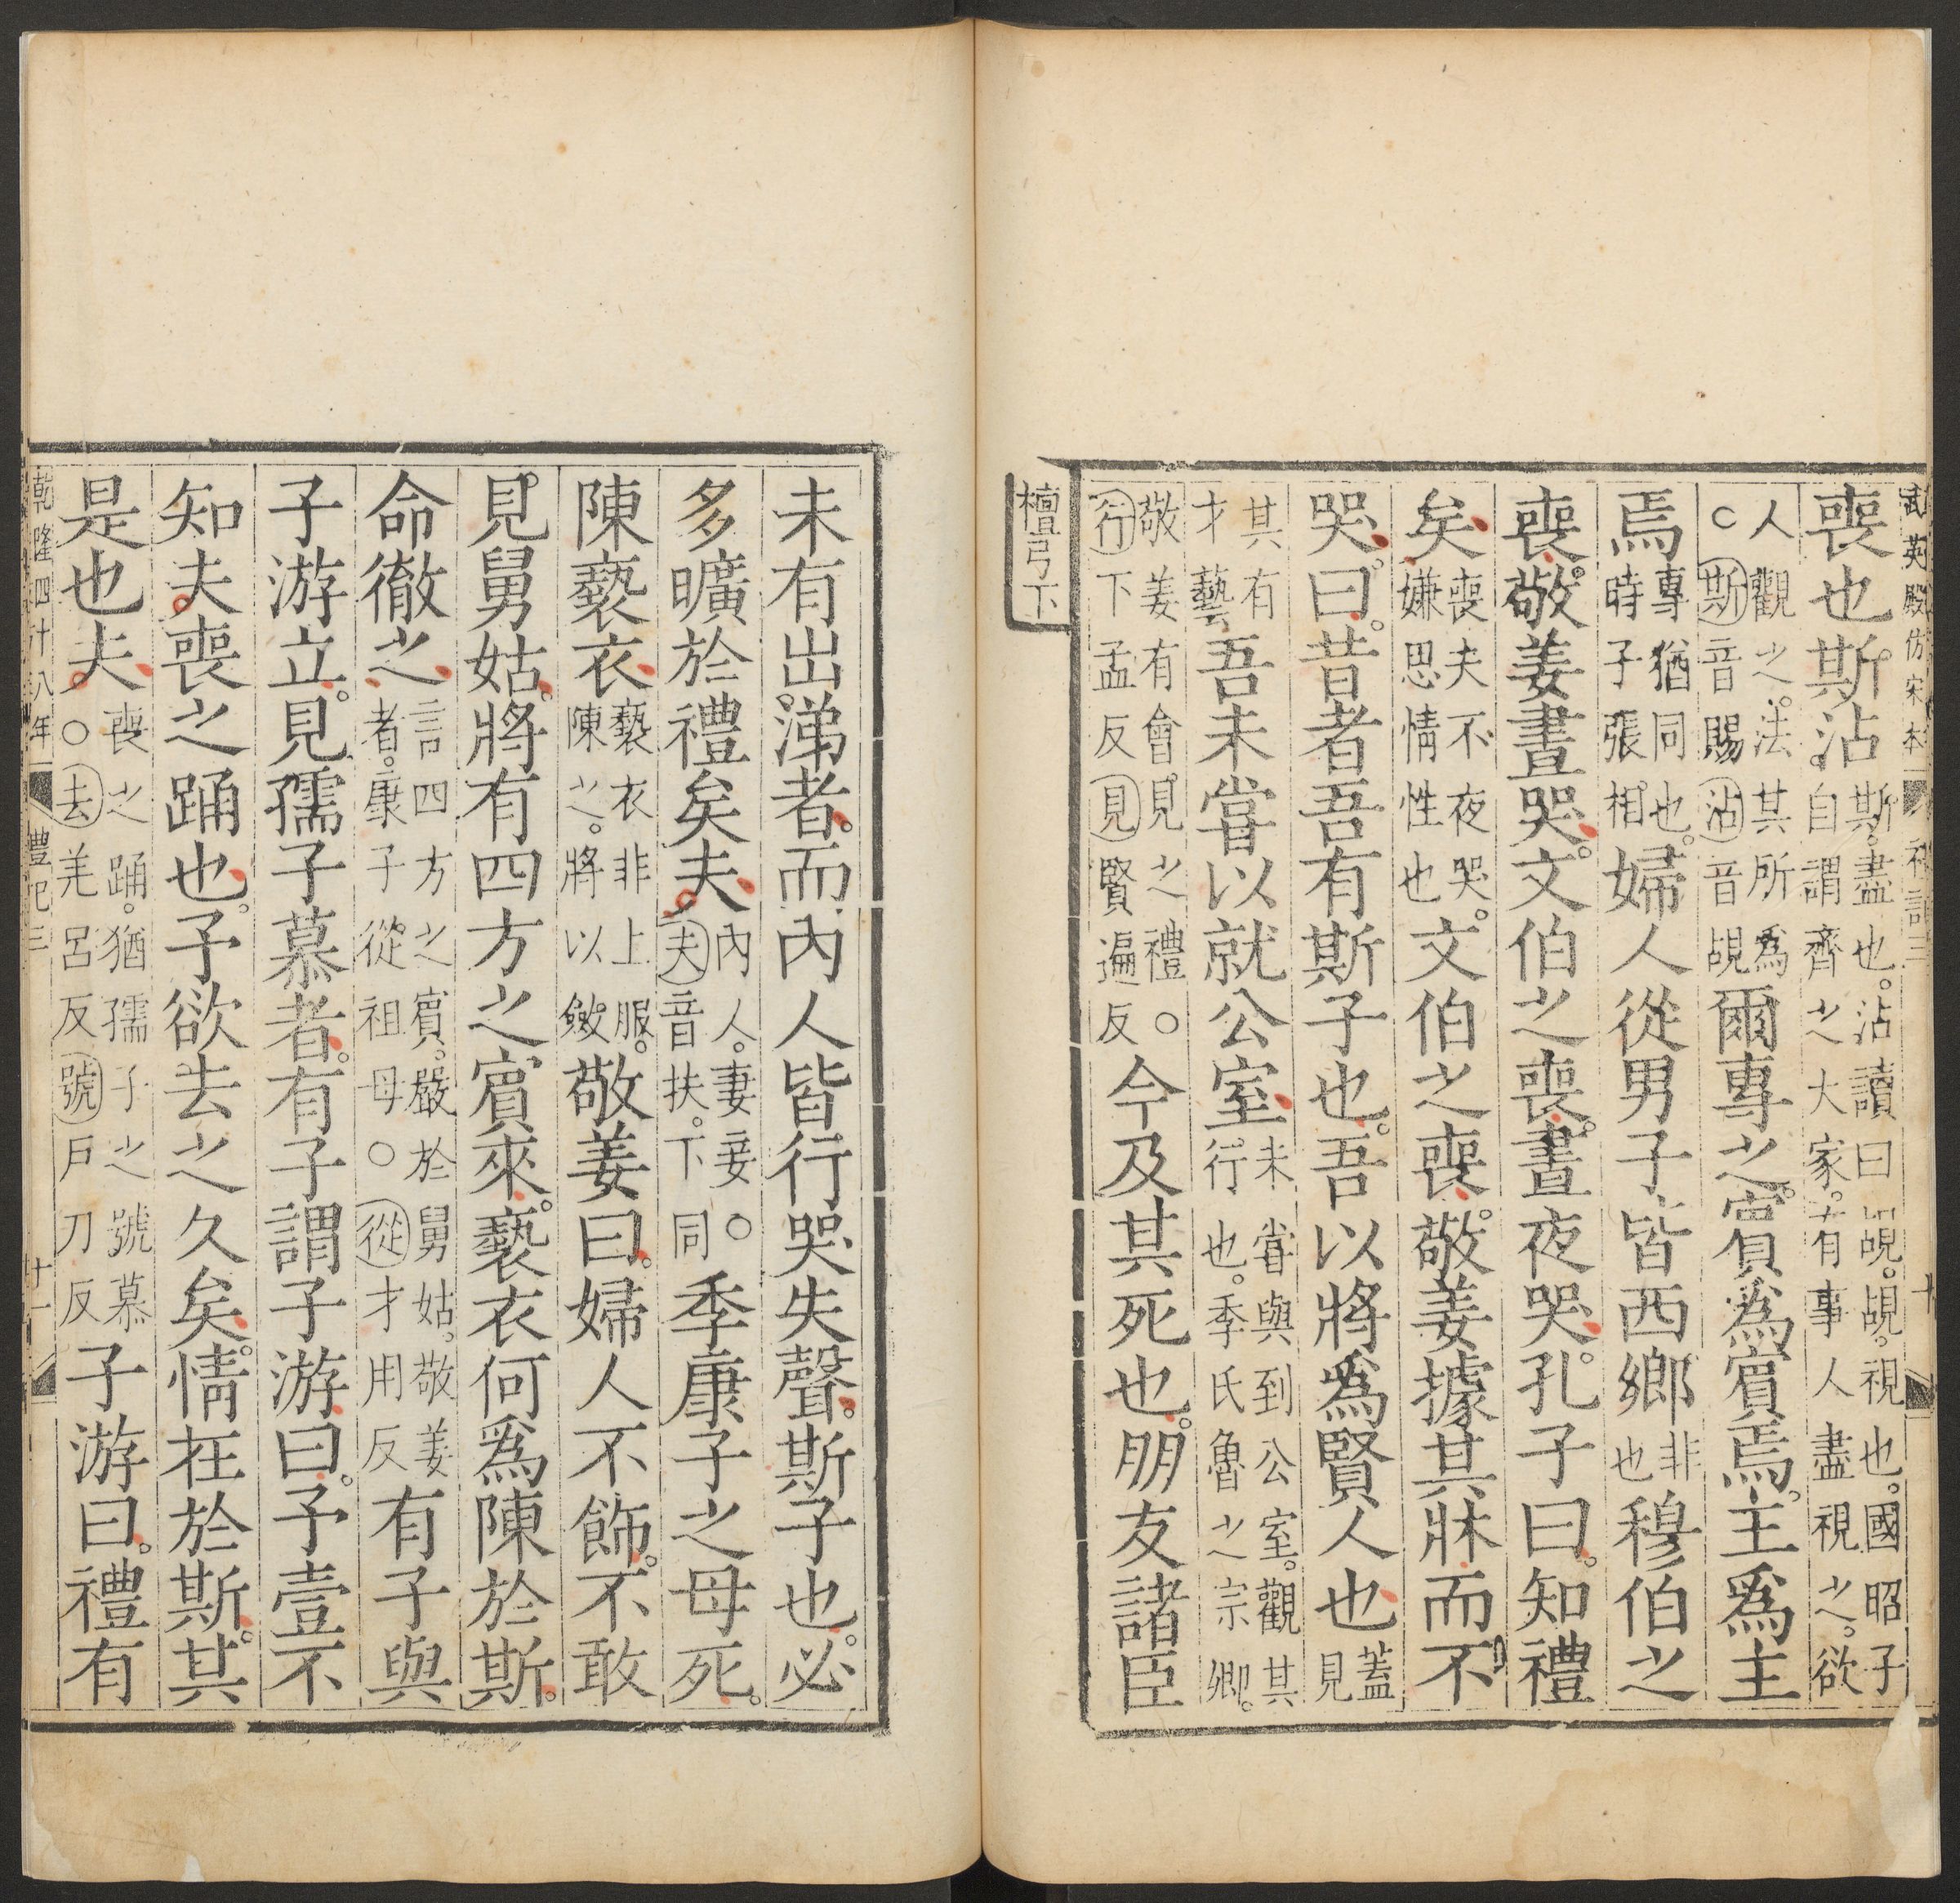 武英殿仿宋本 禮記三 十
喪也斯沾斯盡也沾讀曰覘覘視也國昭子自謂齊之大家有事人盡視之欲
人觀之法其所爲○斯音賜沾音覘爾專之賓爲賓焉主爲主
焉專猶同也時子張相婦人從男子皆西鄉非也穆伯之
喪敬姜晝哭文伯之喪晝夜哭孔子曰知禮
矣喪夫不夜哭嫌思情性也文伯之喪敬姜據其牀而不
哭曰昔者吾有斯子也吾以將爲賢人也蓋見
其有才藝吾未嘗以就公室未嘗與到公室觀其行也季氏魯之宗卿
敬姜有會見之禮○行下孟反見賢遍反今及其死也朋友諸臣
檀弓下
未有出涕者而內人皆行哭失聲斯子也必
多曠於禮矣夫內人妻妾○夫音扶下同季康子之母死
陳褻衣褻衣非上服陳之將以斂敬姜曰婦人不飾不敢
見舅姑將有四方之賓來褻衣何爲陳於斯
命徹之言四方之賓嚴於舅姑敬姜者康子從祖母○從才用反有子與
子游立見孺子慕者有子謂子游曰予壹不
知夫喪之踊也予欲去之久矣情在於斯其
是也夫喪之踊猶孺子之號慕○去羌呂反號戶刀反子游曰禮有
乾隆四十八年 禮記三 十一